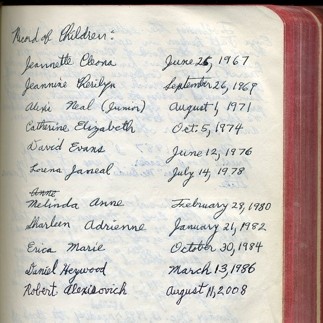 Record of Children:
Jeannette Cleona June 25, 1967
Jeannine Cherilyn September 26, 1969
Alexi Neal (Junior) August 1, 1971
Catherine Elizabeth Oct. 5, 1974
David Evans June 12, 1976
Lorena Janeal July 14, 1978
Anne
Melinda Anne February 28, 1980
Sharleen Adrienne January 21, 1982
Erica Marie October 30, 1984
Daniel Heywood March 13, 1986
Robert Alexisovich August 11, 2008